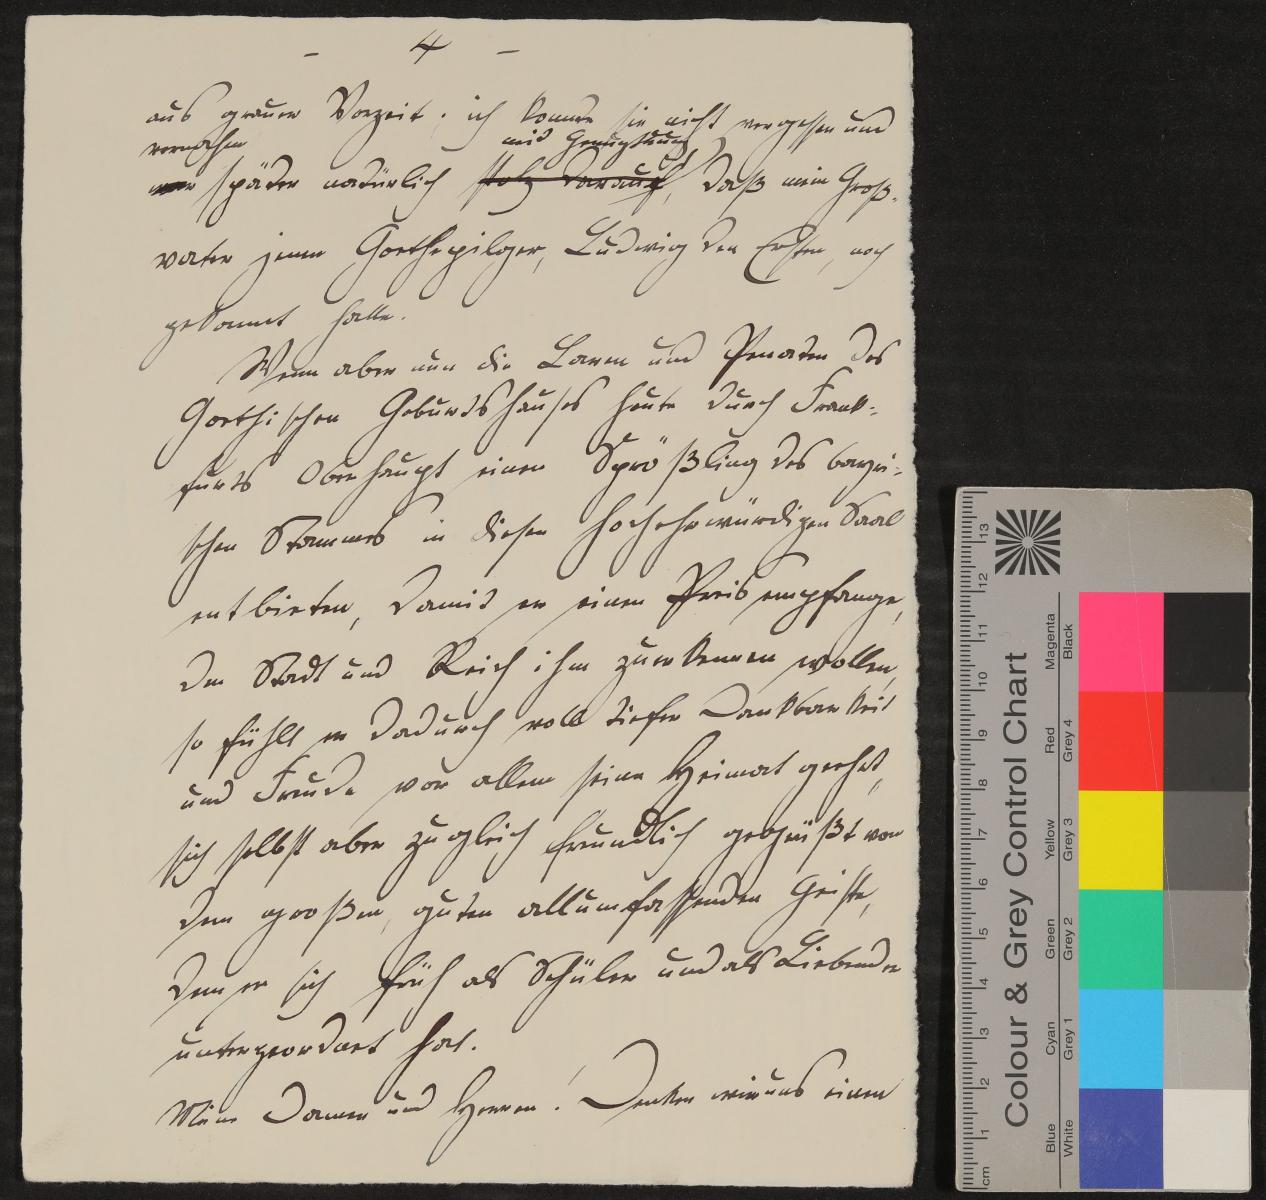 – 4 –
aus grauer Vorzeit. ich konnte sie nicht vergessen und
vernahm mit Genugthuung
war später natürlich stolz darauf, daß mein Groß-
vater jenen Goethepilger, Ludwig den Ersten, noch
gekannt hatte.
Wenn aber nun die Laren und Penaten des
Goethischen Geburtshauses heute durch Frank-
furts Oberhaupt einen Sprößling des bayri-
schen Stammes in diesen hochehrwürdigen Saal
entbieten, damit er einen Preis empfange,
den Stadt und Reich ihm zuerkennen wollen,
so fühlt er dadurch voll tiefer Dankbarkeit
und Freude vor allem seine Heimat geehrt,
sich selbst aber zugleich freundlich gegrüßt von
dem großen, guten allumfassenden Geiste,
dem er sich früh als Schüler und als Liebender
untergeordnet hat.
Meine Damen und Herren! Denken wir uns einen
Colour & Grey Control Chart
Blue Cyan Green Yellow Red Magenta
White Grey 1 Grey 2 Grey 3 Grey 4 Black
cm 1 2 3 4 5 6 7 8 9 10 11 12 13